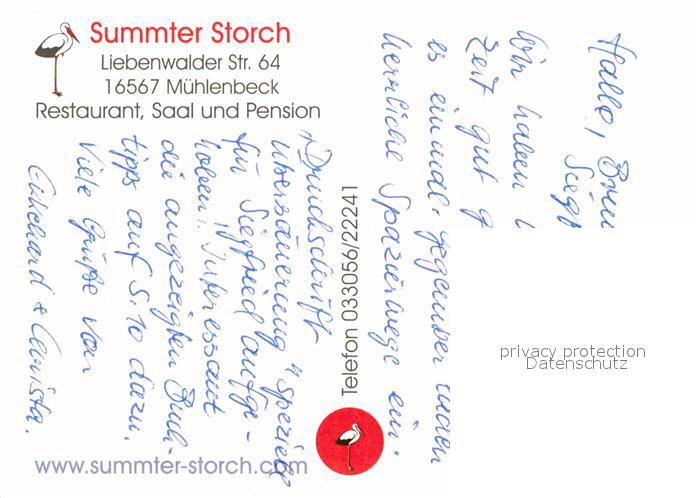 Summter Storch
Liebenwalder Str. 64
16567 Mühlenbeck
Restaurant, Saal und Pension
Hallo!
Wir haben
Zeit gut g
es einmal. gegenüber laden
herrliche Spazierwege ein.
"Druckschrift
Übersäuerung" speziell
für Siegfried aufge-
hoben. Interessant
die angezeigten Buch-
tipps auf S. 10 dazu.
Viele Grüße von
Ekkehard + Christa.
Telefon 033056/22241
www.summter-storch.com
privacy protection
Datenschutz